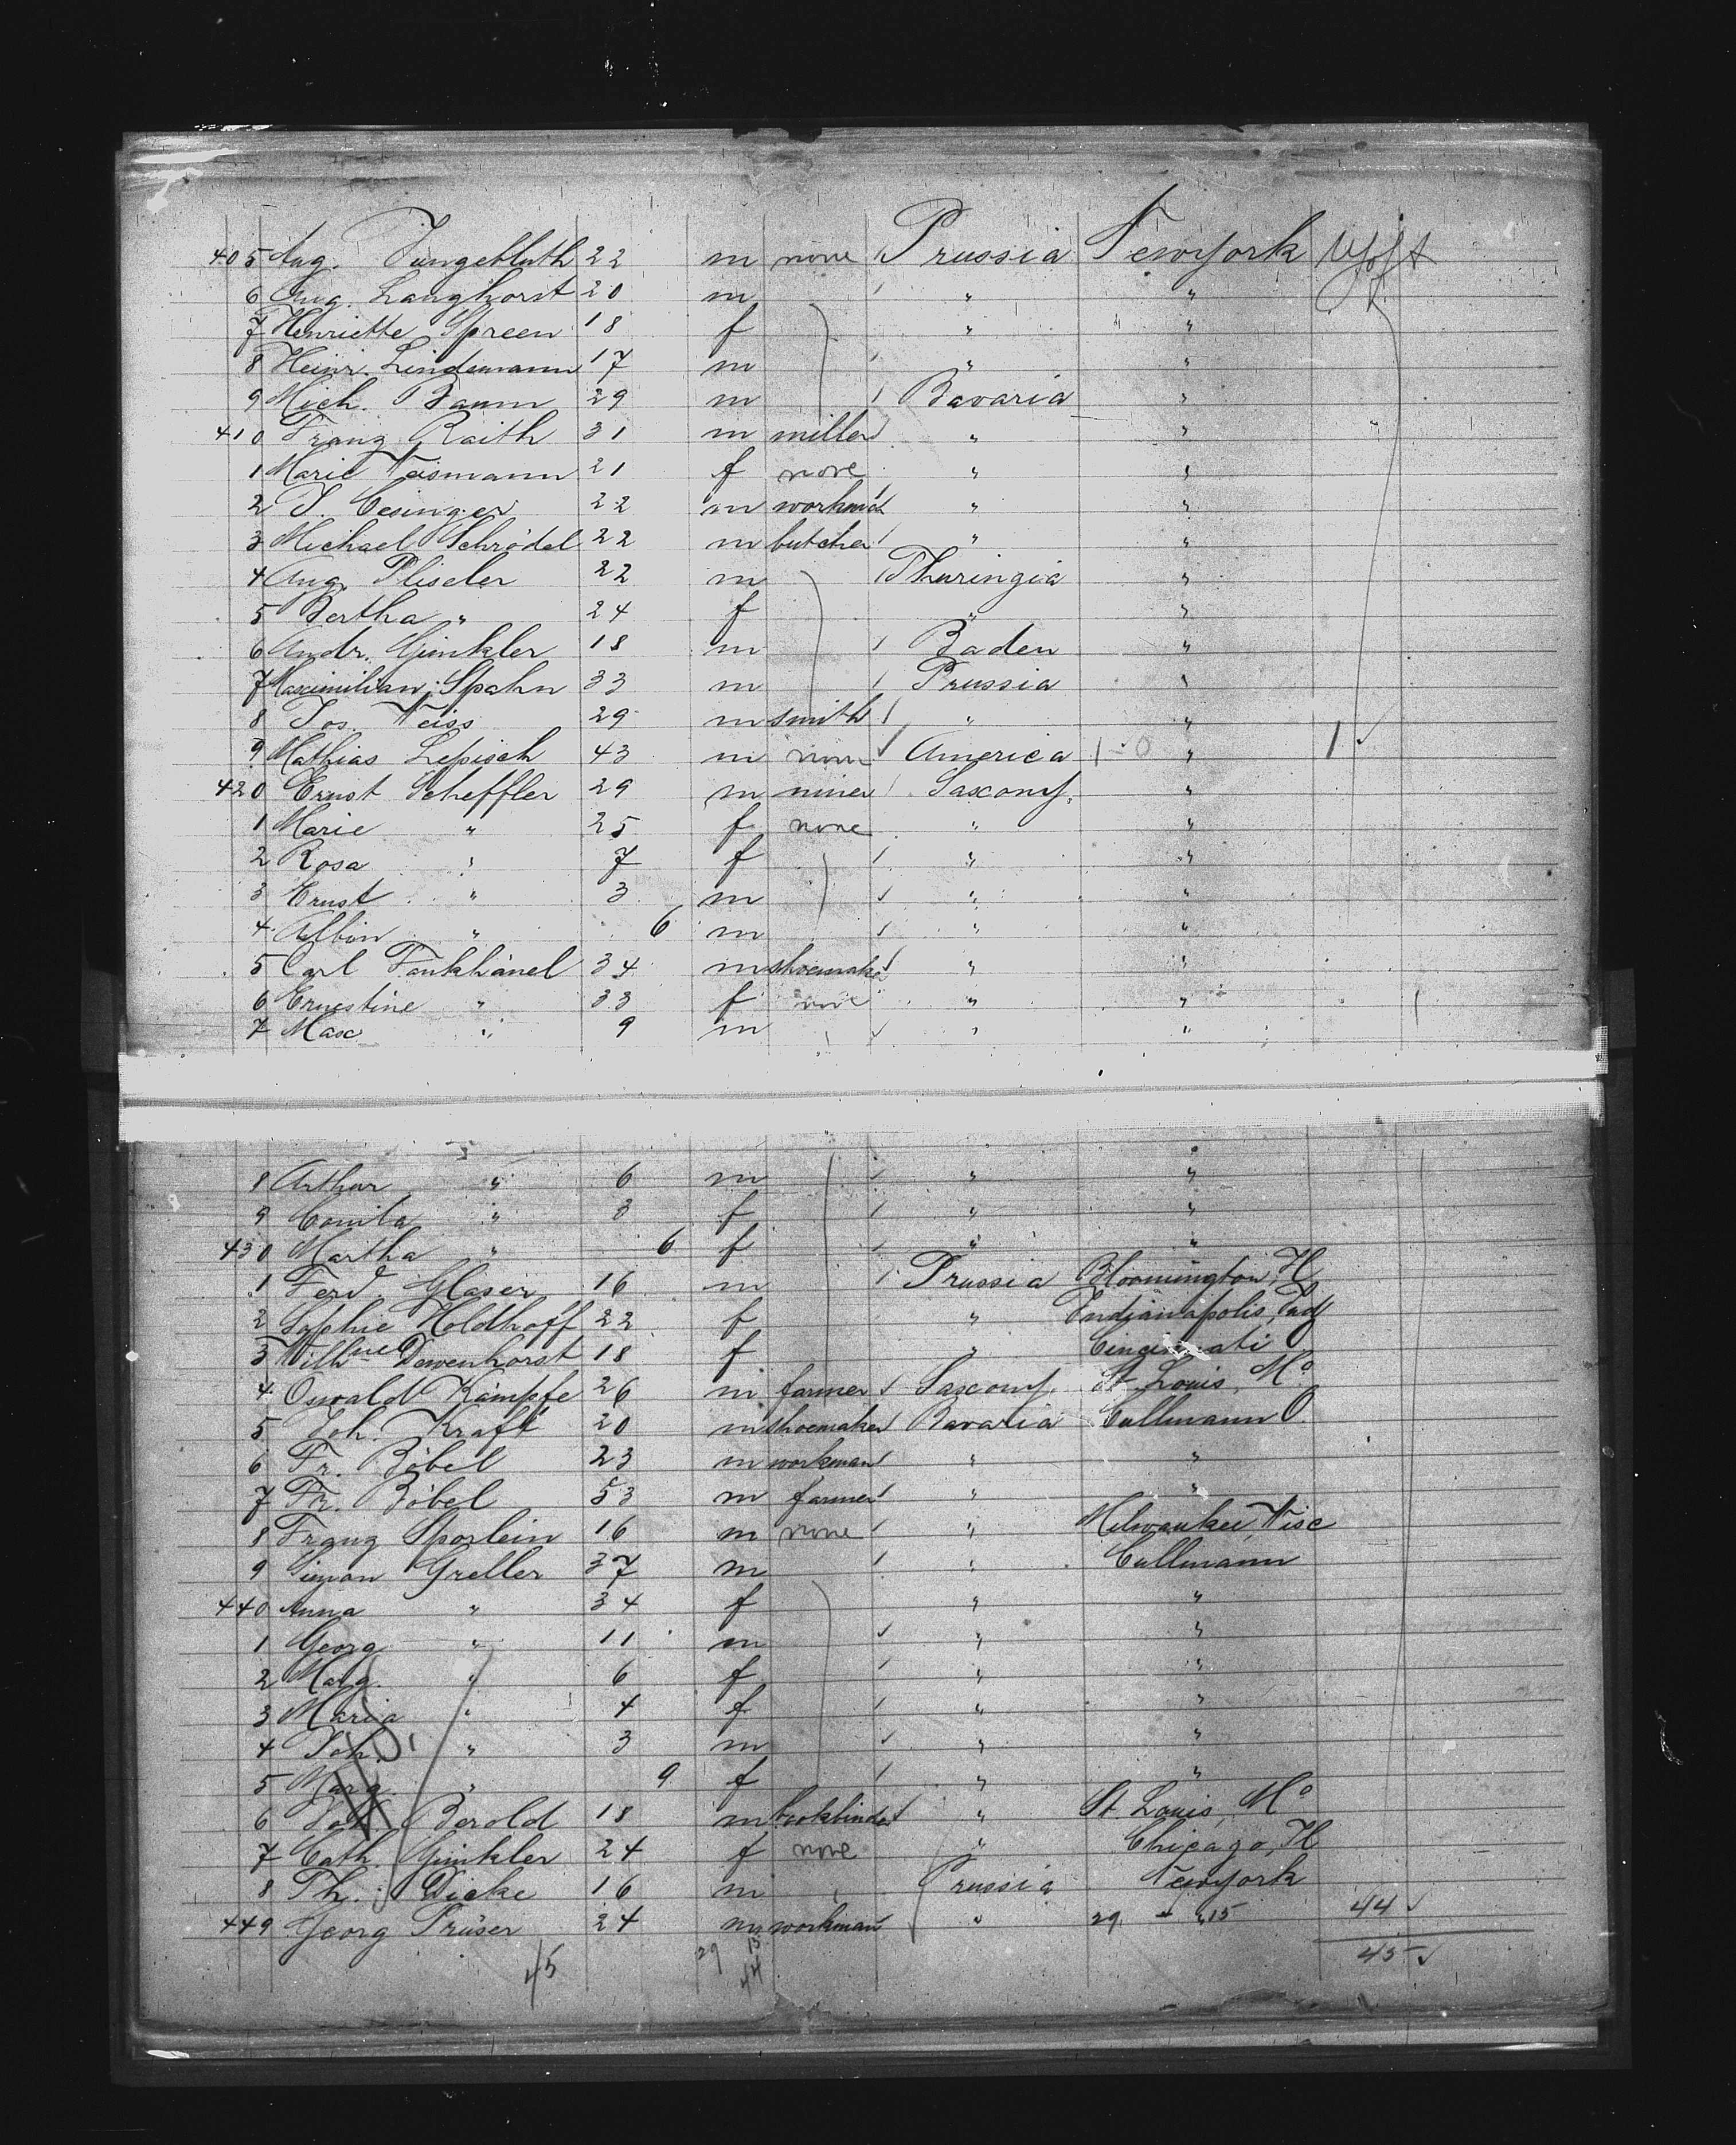 405 Aug. Jungebluth 22 m none Prussia Newyork
6 Aug. Langhorst 20 m " "
7 Henriette Spreen 18 f " "
8 Heinr. Lindemann 17 m " "
9 Mich. Baum 29 m Bavaria "
410 Franz Raith 31 m miller " "
1 Marie Weismann 21 f none " "
2 J. Cesinger 22 m workman " "
3 Michael Schrödel 22 m butcher " "
4 Aug. Pliseler 22 m Thuringia "
5 Bertha " 24 f " "
6 Andr. Ginkler 18 m Baden "
7 Maximilian Spahn 33 m Prussia "
8 Jos. Weiss 29 m smith " "
9 Mathias Lepisch 43 m none America 1-0 " 1
420 Ernst Scheffler 29 m miner Saxony "
1 Marie " 25 f none " "
2 Rosa " 7 f " "
3 Ernst " 3 m " "
4 Albin " 6 m " "
5 Carl Fankhänel 34 m shoemaker " "
6 Ernestine " 33 f none " "
7 Max " 9 m " "
8 Arthur " 6 m " "
9 Camila " 3 f " "
430 Martha " 6 f " "
1 Ferd. Glaser 16 m Prussia Bloomington, Il
2 Sophie Holdhoff 22 f " Indianapolis, Ind
3 Wilhne Dewenhorst 18 f " Cincinnati O
4 Oswald Kämpfe 26 m farmer Saxony St. Louis, Mo
5 Joh. Kraft 20 m shoemaker Bavaria Cullmann O.
6 Fr. Böbel 23 m workman " "
7 Fr. Böbel 53 m farmer " "
8 Franz Sporlein 16 m none " Milwaukee, Wisc
9 Simon Greller 37 m " Cullmann
440 Anna " 34 f " "
1 Georg " 11 m " "
2 Marg. " 6 f " "
3 Maria " 4 f " "
4 Joh. " 3 m " "
5 Marg. " 9 f " "
6 Joh. Berold 18 m bookbinder " St. Louis, Mo
7 Cath. Ginkler 24 f none " Chicago, Il
8 Th. Dicke 16 m " Prussia Newyork
449 Georg Prüser 24 m workman " 29 " 15 44
45 29 15 44 45